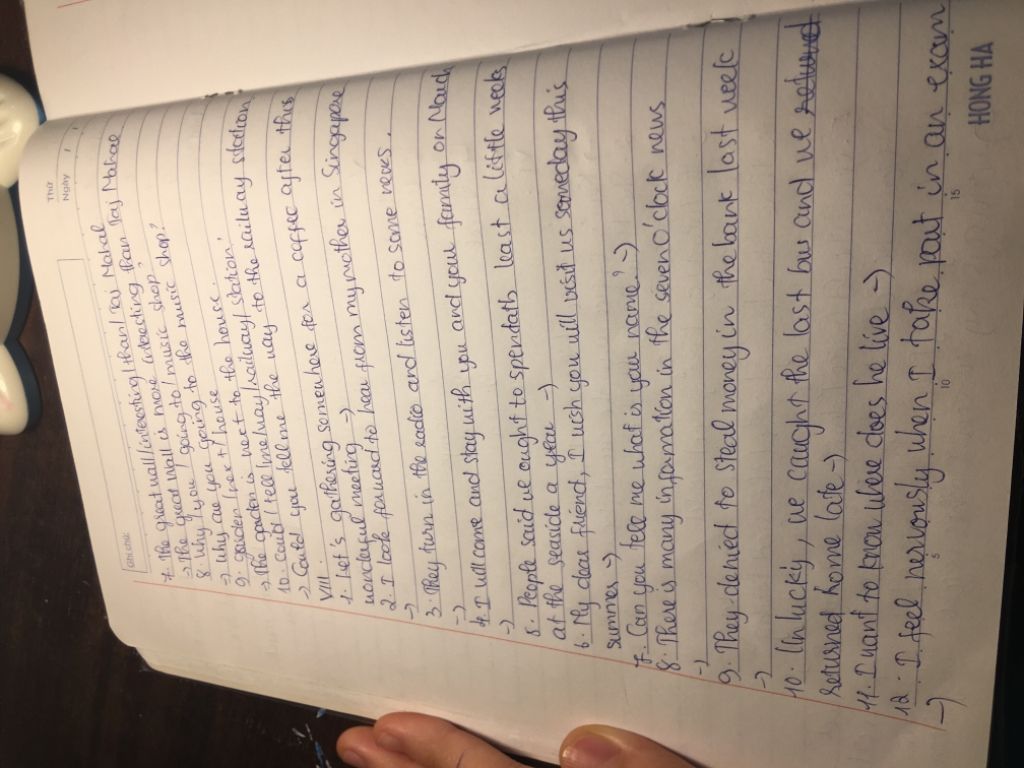 Thứ
Ngày / /
7. The great wall/interesting/than/Taj Mahal
-> The great wall is more interesting than Taj Mahal
8. Why/you/going to/music shop?
-> Why are you going to the music shop?
9. garden/next/house.
-> The garden is next to the house.
10. Could/tell/me/way/railway/station.
-> Could you tell me the way to the railway station
VIII.
1. Let's gathering somewhere for a coffee after this
wonderful meeting ->
2. I look forward to hear from my mother in Singapore
->
3. They turn in the radio and listen to some news.
->
4. I will come and stay with you and your family on March
->
5. People said we ought to spend at least a little weeks
at the seaside a year ->
6. My dear friend, I wish you will visit us someday this
summer ->
7. Can you tell me what is you name? ->
8. There is many information in the seven o'clock news
->
9. They denied to steal money in the bank last week
->
10. Unlucky, we caught the last bus and we
returned home late ->
11. I want to know where does he live ->
12. I feel nervously when I take part in an exam
->
5 10 15
HONG HA